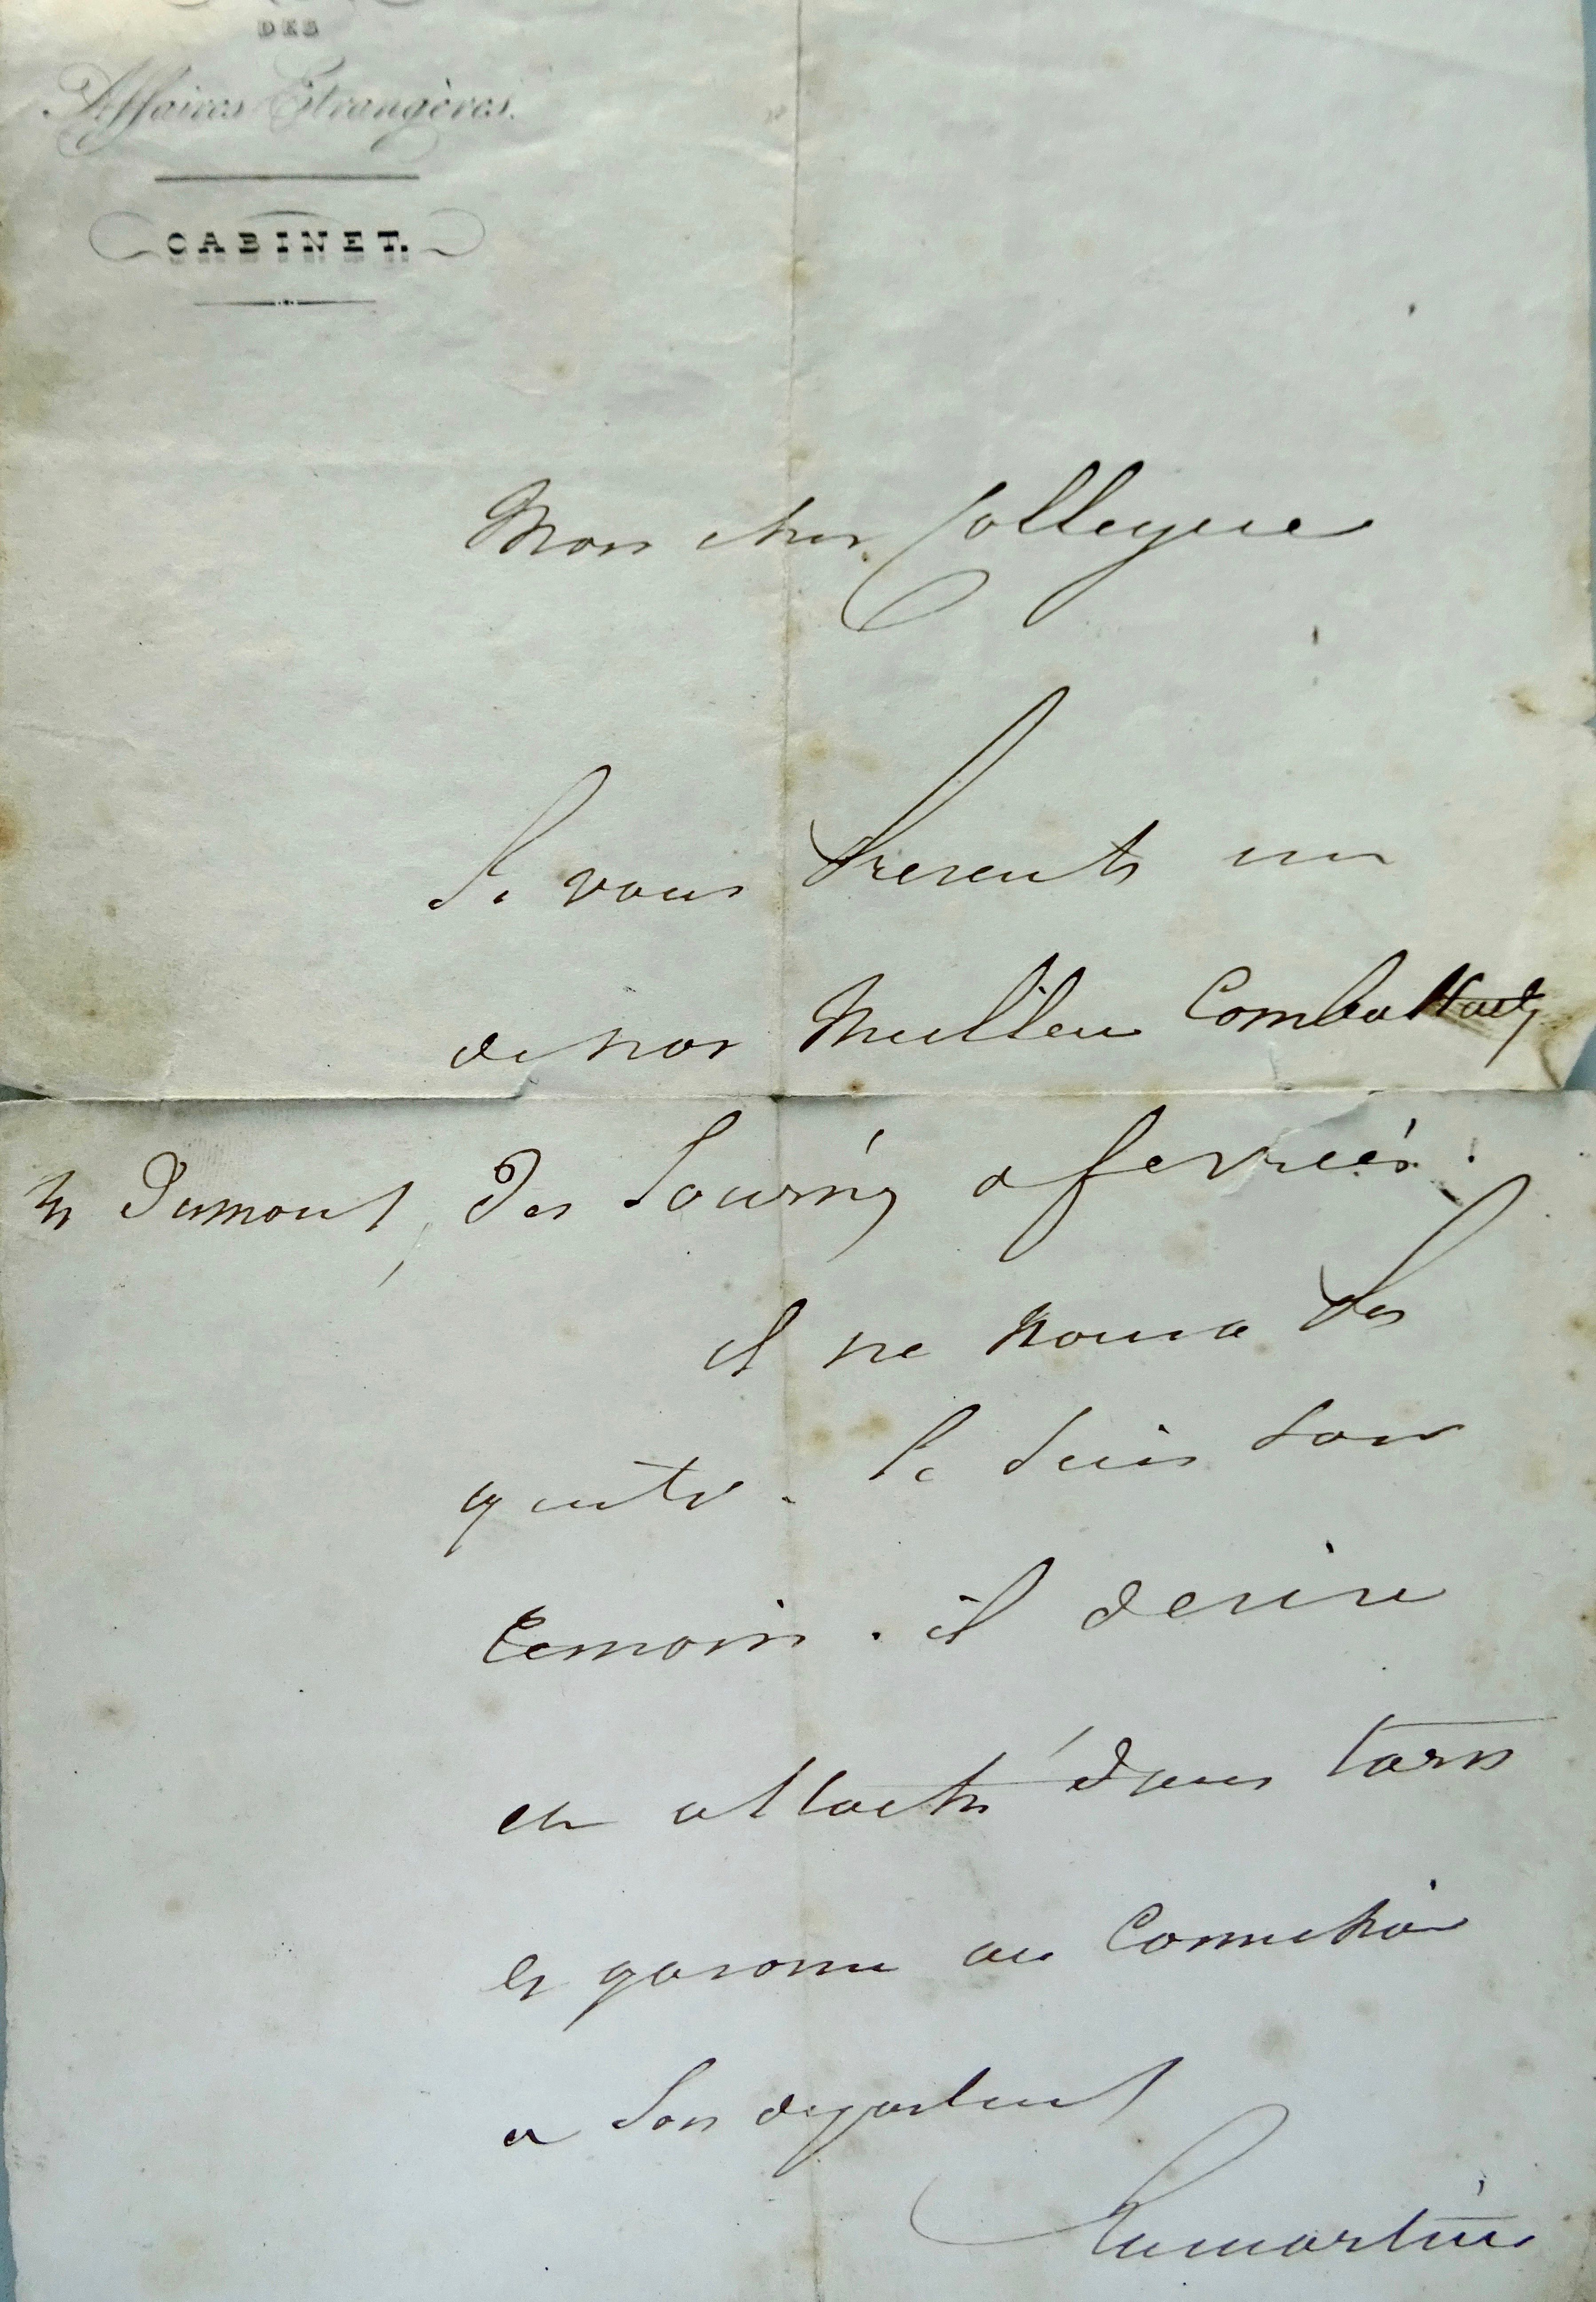 DES
Affaires Etrangères.
CABINET.
Mon cher Collegue
Je vous presente un
de nos Meilleurs Combattants
Mr Dumont, Des Journées de fevrier.
il ne nous a pas
quitté. Je suis son
temoin. il desire
etre attaché dans tarn
et garonne au Commissaire
a son departement
Lamartine